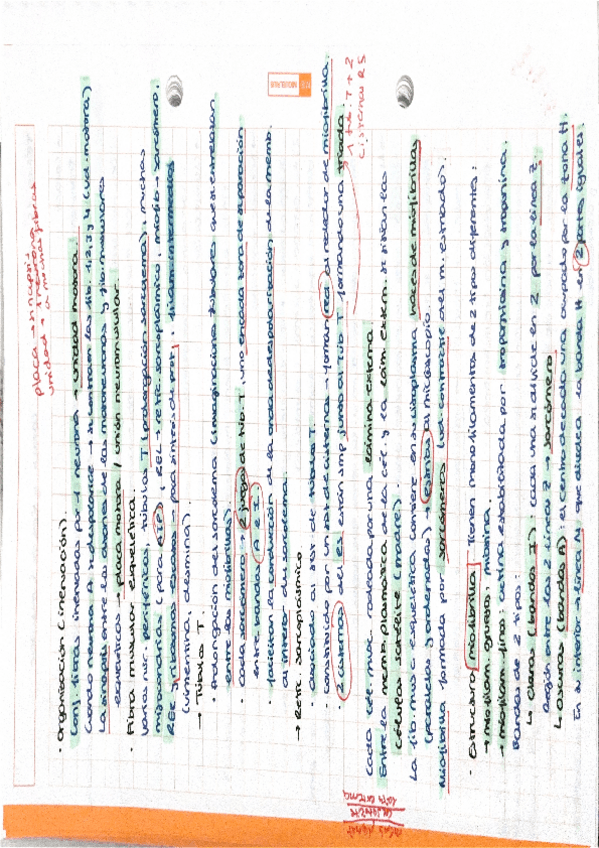 placa → 1 n y sus fibras
unidad → 1 neurona
a muchas fibras
· Organización (inervación).
Conj. fibras inervadas por 1 neurona → unidad motora.
Cuando neurona a. se despierte → se contraen las fib. 1, 2, 3 y 4 (ud. motora).
La sinapsis entre los axones de las motoneuronas y fib. musculares
esqueléticas → placa motora / unión neuromuscular.
· Fibra muscular esquelética.
Varios nuc. periféricos, túbulos T (prolongación sarcolema), muchas
mitocondrias (para ATP), REL → retíc. sarcoplásmico, miofib → sarcómero.
REr y ribosomas escasos para síntesis de prot., filam. intermedios
(vimentina, desmina).
→ Túbulo T.
· Prolongación del sarcolema (invaginaciones tubulares que se entrelazan
entre las miofib.)
· cada sarcómero → 2 juegos de tub. T, uno en cada zona de separación
entre bandas A e I.
· facilitan la conducción de la onda de despolarización de la memb.
al interior del sarcoplasma.
→ Retíc. sarcoplásmico
· asociado al sist. de túbulos T.
· constituido por un sist. de cisternas → forman red alrededor de miofibrilla.
· 2 cisternas del REL están junto al tubo T formando una triada.
1 tub. T + 2
cisternas RS
Cada cél. musc. rodeada por una lámina externa
Entre la memb. plasmática de la cél. y la lam. extern. se sitúan las
células satélite (madre).
La fib. musc. esquelética contiene en su citoplasma haces de miofibrillas
(paralelas y ordenadas) → estrías al microscopio.
Miofibrilla formada por sarcómeros (ud. contráctil del m. estriado).
· Estructura miofibrilla: Tienen miofilamentos de 2 tipos diferentes:
→ miofilam. grueso: miosina.
→ miofilam. fino: actina estabilizada por tropomiosina y troponina.
Bandas de 2 tipos:
↳ claras (bandas I): cada una se divide en 2 por la línea Z.
Región entre las 2 líneas Z → sarcómero
↳ oscuras (bandas A): el centro de cada una ocupado por la zona H.
En su interior → línea M que divide a la banda H en 2 partes iguales.
MIQUELRIUS